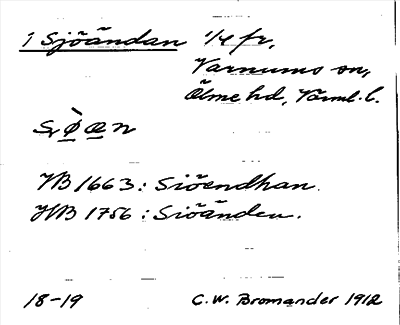 1 Sjöändan 1/4 fr,
Varnums sn,
Ölme hd, Värml. l.
JB 1663: Siöendhan.
JB 1756: Siöänden.
18-19 C.W. Bromander 1912